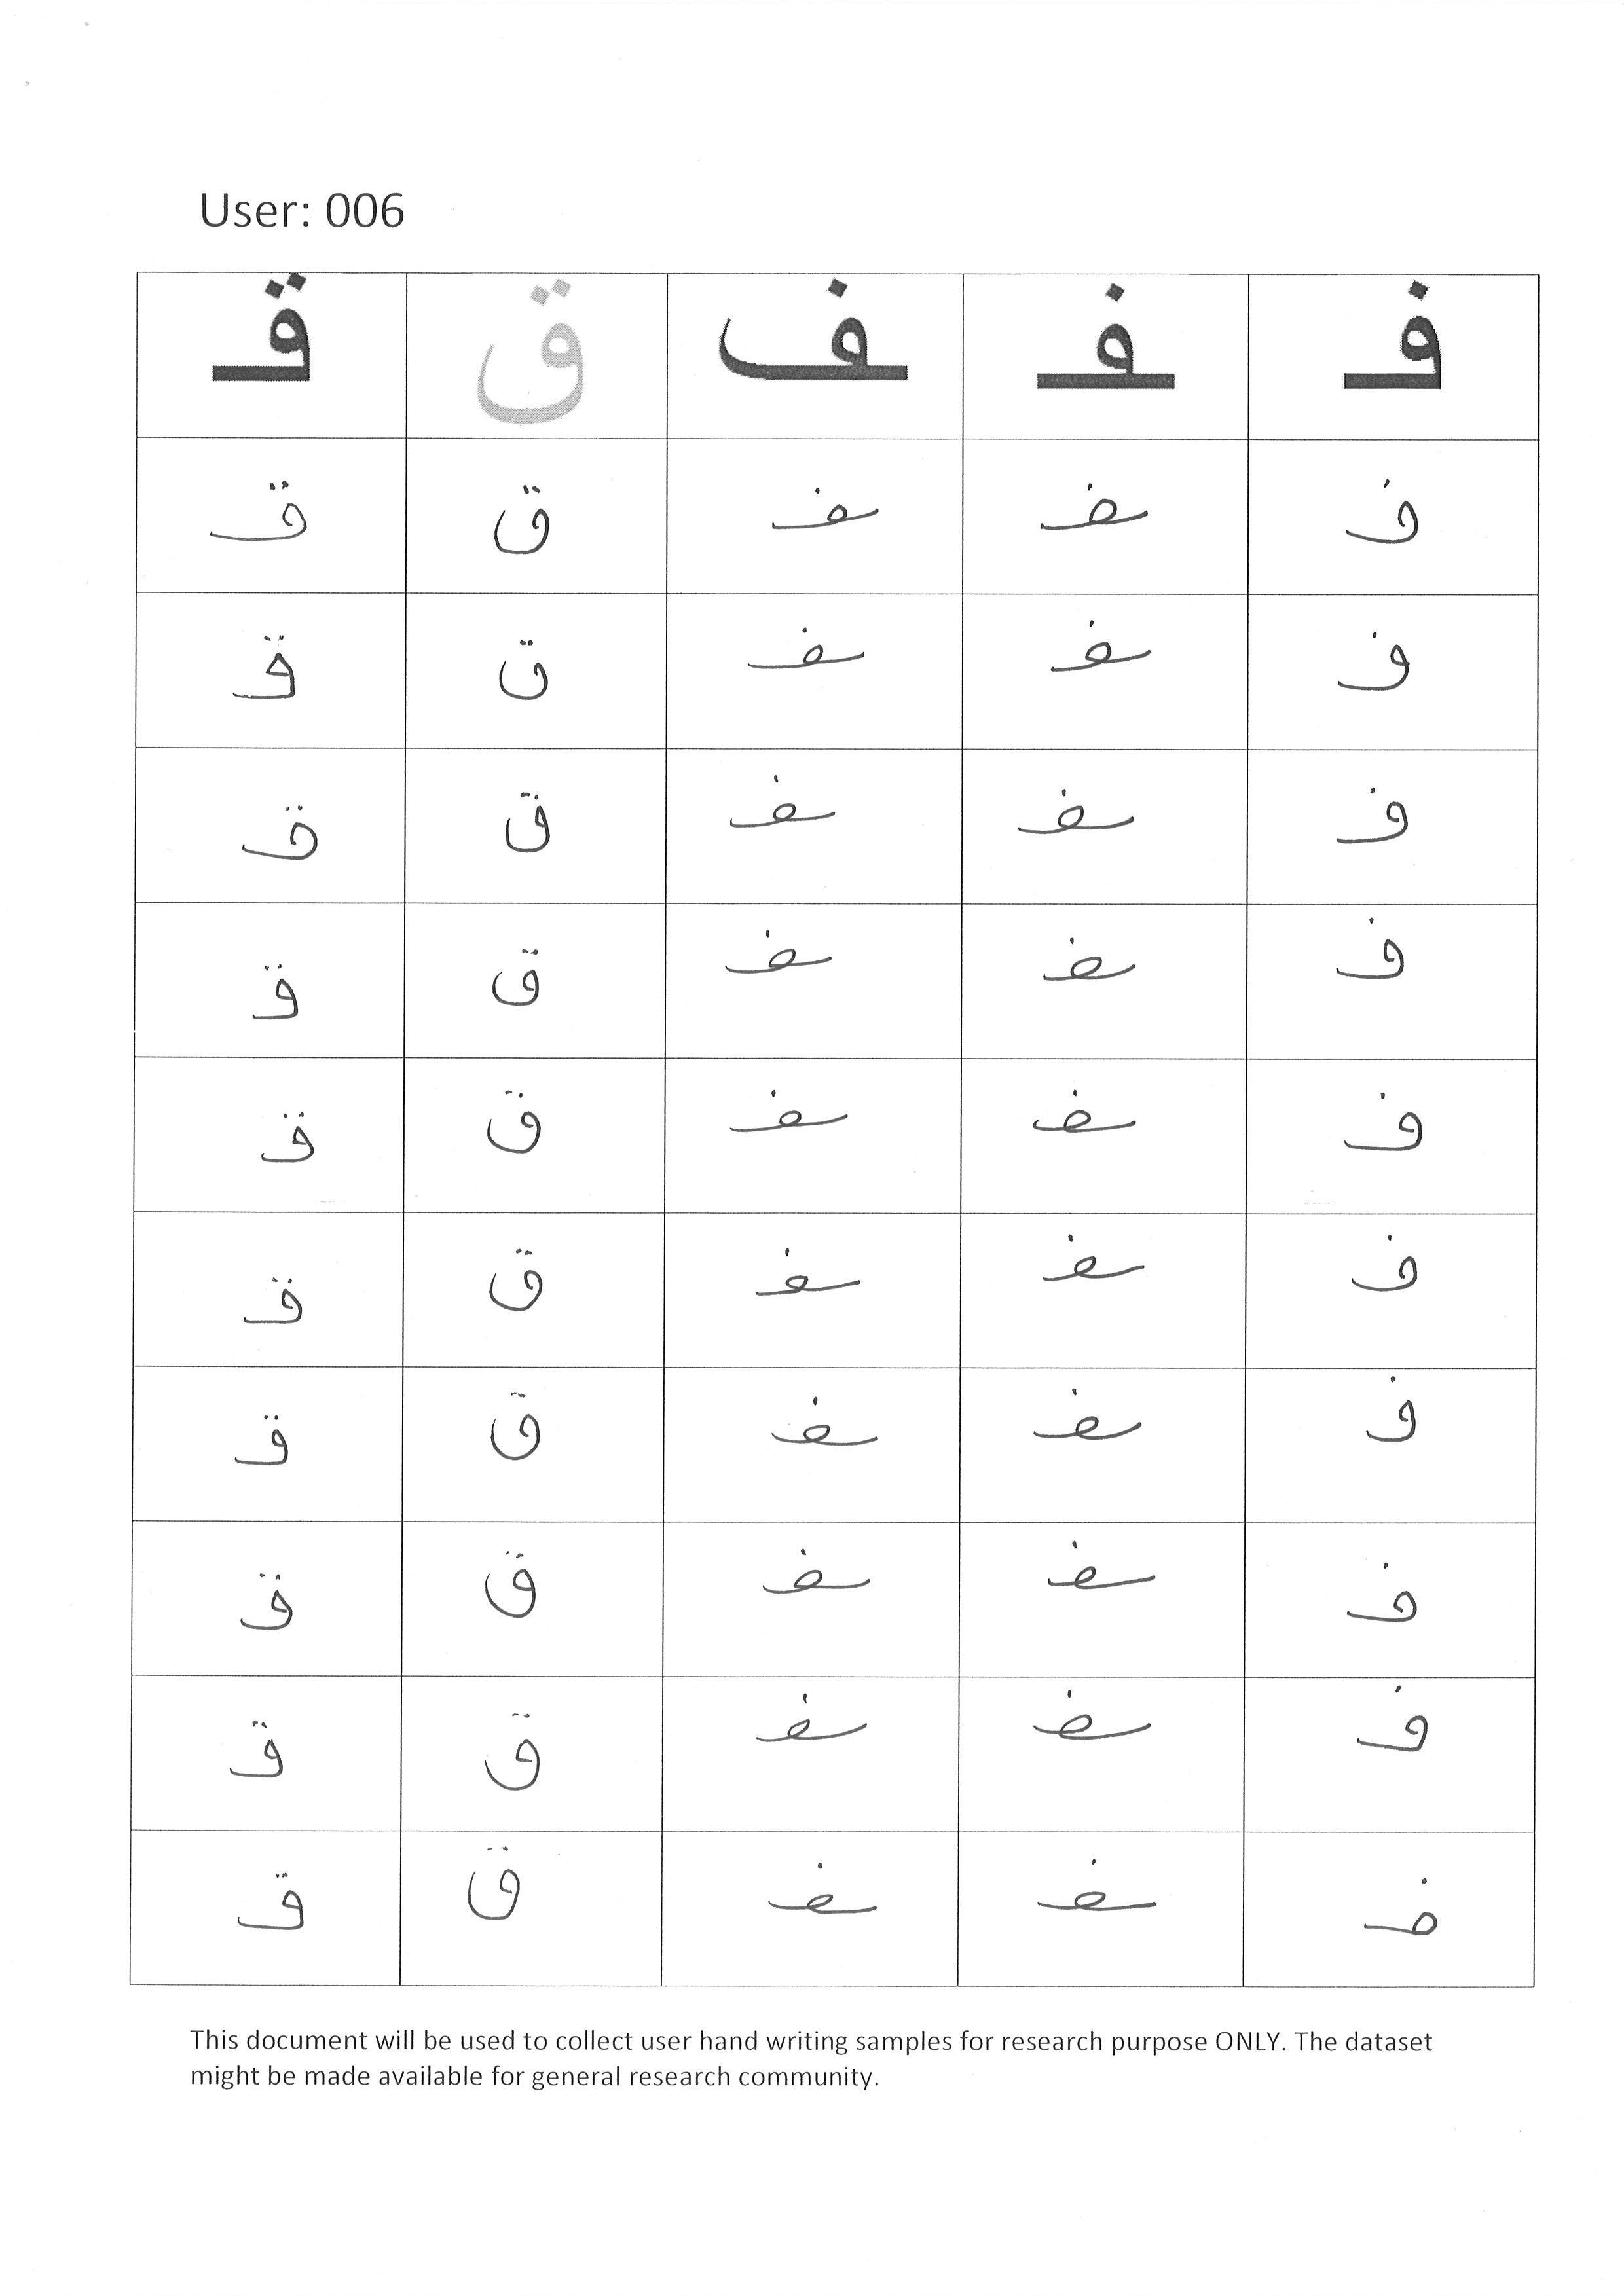 User: 006
فـ ـفـ ـف ق قـ
فـ ـفـ ـفـ ق قـ
فـ ـفـ ـفـ ق قـ
فـ ـفـ ـفـ ق قـ
فـ ـفـ ـفـ ق قـ
فـ ـفـ ـفـ ق قـ
فـ ـفـ ـفـ ق قـ
فـ ـفـ ـفـ ق قـ
فـ ـفـ ـفـ ق قـ
فـ ـفـ ـفـ ق قـ
فـ ـفـ ـفـ ق قـ
This document will be used to collect user hand writing samples for research purpose ONLY. The dataset
might be made available for general research community.